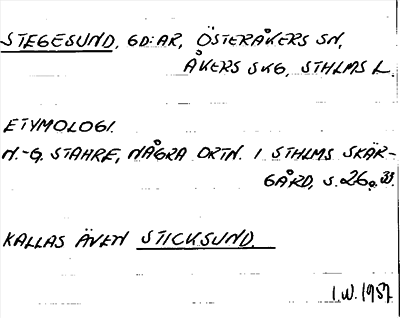 STEGESUND, GD:AR, ÖSTERÅKERS SN,
ÅKERS SKG, STHLMS L.
ETYMOLOGI.
N.-G. STAHRE, NÅGRA ORTN. I STHLMS SKÄR-
GÅRD, S. 26 o. 33.
KALLAS ÄVEN STICKSUND.
I.W. 1957